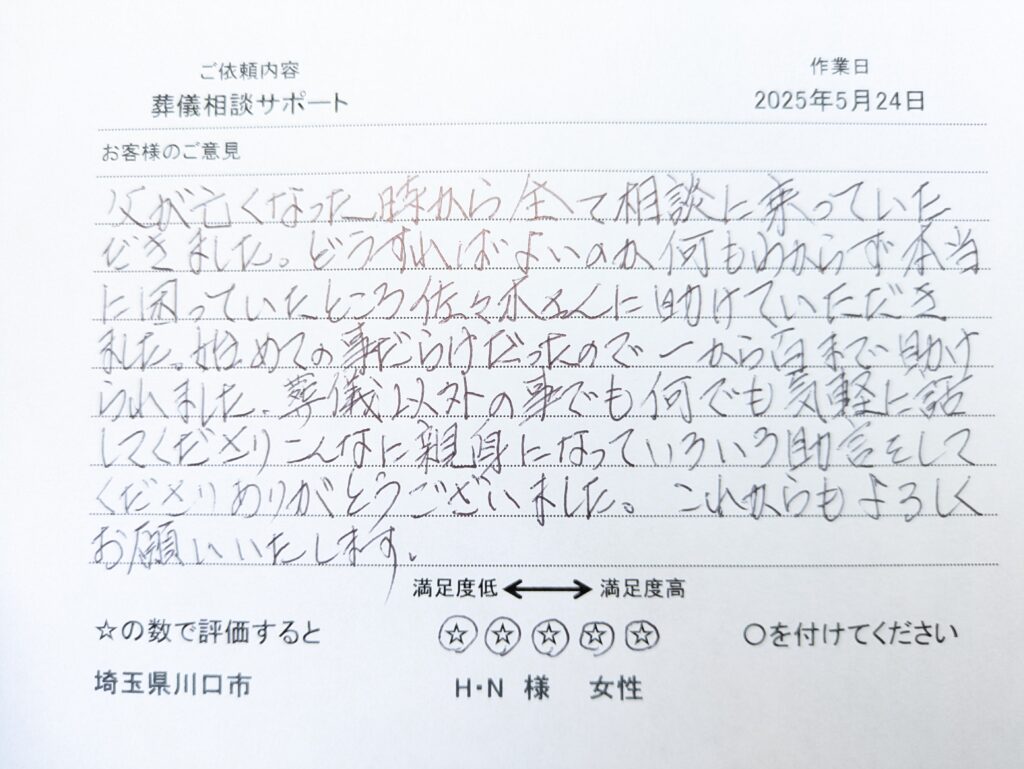 ご依頼内容
作業日
葬儀相談サポート
2025年5月24日
お客様のご意見
父が亡くなった時から全て相談に乗っていた
だきました。どうすればよいのか何もわからず本当
に困っていたところ佐々木さんに助けていただき
ました。始めての事だらけだったので一から百まで助け
られました。葬儀以外の事でも何でも気軽に話
してくださりこんなに親身になっていろいろ助言をして
くださりありがとうございました。これからもよろしく
お願いいたします。
満足度低 ⟷ 満足度高
☆の数で評価すると ☆☆☆☆☆ ○を付けてください
埼玉県川口市 H・N 様 女性